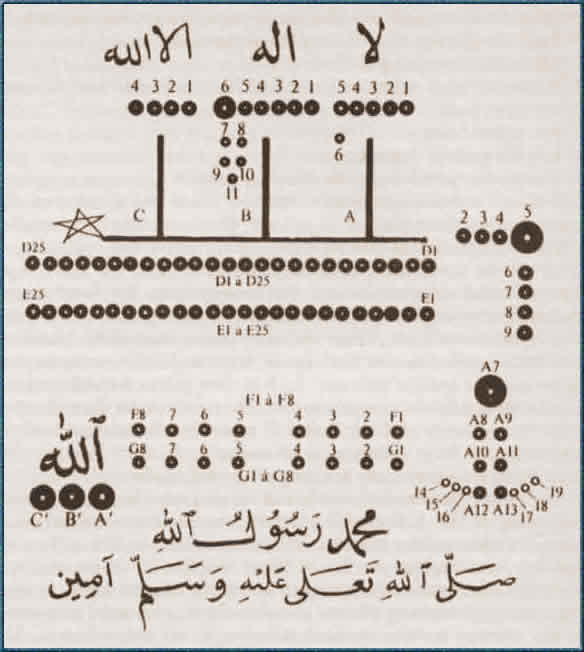 لا اله الاالله
4 3 2 1 6 5 4 3 2 1 5 4 3 2 1
7 8
6
9 10
11
C B A
2 3 4 5
D25 D1
D1 à D25
6
7
E25 E1
8
E1 à E25
9
A7
F1 à F8
F8 7 6 5 4 3 2 F1
A8 A9
G8 7 6 5 4 3 2 G1
A10 A11
G1 à G8
ٱللّٰه
14 19
15 18
16 A12 A13 17
C' B' A'
محمد رَسُولُ ٱللهِ
صَلَّى ٱللهِ تَعَلَى عَلَيْهِ وَسَلَّم آمِين